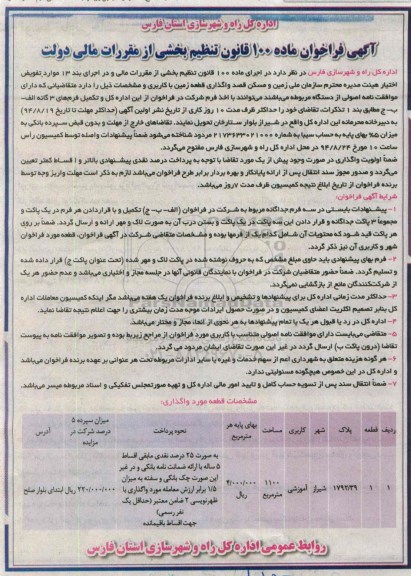 اداره کل راه و شهرسازی استان فارس
آگهی فراخوان ماده ۱۰۰ قانون تنظیم بخشی از مقررات مالی دولت
اداره کل راه و شهرسازی فارس در نظر دارد در اجرای ماده ۱۰۰ قانون تنظیم بخشی از مقررات مالی و در اجرای بند ۱۳ موارد تفویض
اختیار هیئت مدیره محترم سازمان ملی زمین و مسکن قصد واگذاری قطعه زمین با کاربری و مشخصات ذیل را دارد متقاضیانی که دارای
موافقت نامه اصولی از دستگاه مربوطه می‌باشند می‌توانند با اخذ فرم شرکت در فراخوان از این اداره کل و تکمیل فرم‌های ۳ گانه الف-
ب-ج مطابق بند ۱ تذکرات، تقاضای خود را حداکثر ظرف مدت ۱۰ روز کاری از تاریخ نشر اولین آگهی (حداکثر تا تاریخ ۹۴/۸/۱۹)
به دبیرخانه محرمانه این اداره کل واقع در شیراز بلوار ستارخان تحویل نمایند. تقاضاهای خارج از مهلت و بدون فیش سپرده بانکی به
میزان ۵٪ بهای پایه به حساب سیبا به شماره ۲۱۷۳۶۳۳۰۲۱۰۰۰ مردود شناخته می‌شود ضمناً پیشنهادات واصله توسط کمیسیون رأس
ساعت ۱۰ مورخ ۹۴/۸/۲۴ در محل اداره کل راه و شهرسازی فارس مفتوح می‌گردد.
ضمناً اولویت واگذاری در صورت وجود بیش از یک مورد تقاضا با توجه به پرداخت درصد نقدی پیشنهادی بالاتر و اقساط کمتر تعیین
می‌گردد و صدور مجوز سند انتقال پس از ارائه پایانکار و بهره بردار برابر طرح فراخوان می‌باشد لازم به ذکر است مهلت واریز وجه توسط
برنده فراخوان از تاریخ ابلاغ نتیجه کمیسیون ظرف مدت ۷ روز می‌باشد.
شرایط آگهی فراخوان:
۱- پیشنهادات بایستی در سه فرم جداگانه مربوط به شرکت در فراخوان (الف-ب-ج) تکمیل و با قرار دادن هر فرم در یک پاکت و
مجموعاً ۳ پاکت جداگانه و قرار دادن این سه پاکت در یک پاکت و بستن درب آن به صورت لاک و مهر ارائه و ارسال گردد. ضمناً بر روی
هر پاکت قید شود که محتویات آن شامل کدام یک از فرم‌ها بوده و مشخصات متقاضی شرکت در آگهی فراخوان، قطعه مورد فراخوان
شهر و کاربری آن نیز ذکر گردد.
۲- فرم بهای پیشنهادی باید حاوی مبلغ مشخص که به حروف نوشته شده در پاکت لاک و مهر شده (تحت عنوان پاکت ج) قرار داده شده
و تسلیم گردد. ضمناً حضور متقاضیان شرکت در فراخوان یا نمایندگان قانونی آنها در جلسه مجاز و اختیاری می‌باشد و عدم حضور هر یک
از شرکت‌کنندگان مانع از بازگشایی نمی‌گردد.
۳- حداکثر مدت زمانی اداره کل برای پیشنهادها و تشخیص و ابلاغ برنده فراخوان یک هفته می‌باشد مگر اینکه کمیسیون معاملات اداره
کل بنابر تصمیم اکثریت اعضای کمیسیون و در صورت حصول ایرادات موجه مدت زمان بیشتری را جهت اعلام نتیجه تقاضا نماید.
۴- اداره کل در رد یا قبول هر یک یا تمام پیشنهادها به هر نحوی از انحاء مجاز و مختار می‌باشد.
۵- متقاضی می‌بایست دارای موافقت نامه اصولی متناسب با کاربری مورد فراخوان از مراجع زیربط بوده و تصویر موافقت نامه به پیوست
تقاضا (درون پاکت ب) ارسال گردد در غیر این صورت تقاضای ایشان مردود می گردد.
۶- هر گونه هزینه متعلق به شهرداری اعم از سهم خدمات و غیره یا سایر ادارات مربوطه تحت هر عنوانی بر عهده برنده فراخوان می‌باشد
و اداره کل در این خصوص هیچگونه مسئولیتی ندارد.
۷- ضمناً انتقال سند پس از تسویه حساب کامل و تایید امور مالی اداره کل و تهیه صورتمجلس تفکیکی و اسناد مربوطه میسر می‌باشد.
مشخصات قطعه مورد واگذاری:
ردیف قطعه پلاک شهر کاربری مساحت بهای پایه هر مترمربع نحوه پرداخت میزان سپرده ۵ درصد شرکت در مزایده آدرس
۱ ۱ ۱۷۹۲/۳۹ شیراز آموزشی ۱۱۰۰ مترمربع ۴/۰۰۰/۰۰۰ ریال به صورت ۲۵ درصد نقدی مابقی اقساط ۵ ساله با ارائه ضمانت نامه بانکی و در غیر این صورت چک بانکی و سفته به میزان ۱/۵ برابر ارزش معامله مورد واگذاری با ظهرنویسی ۲ ضامن معتبر (حداقل یک نفر رسمی) جهت اقساط باقیمانده ۲۲۰/۰۰۰/۰۰۰ ریال ابتدای بلوار صلح
روابط عمومی اداره کل راه و شهرسازی استان فارس